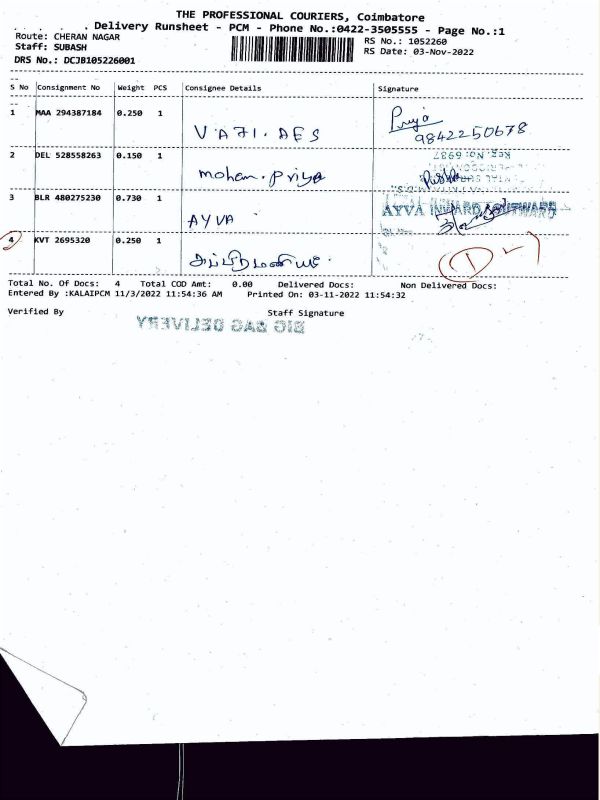 THE PROFESSIONAL COURIERS, Coimbatore
Delivery Runsheet - PCM - Phone No.:0422-3505555 - Page No.:1
Route: CHERAN NAGAR
RS No.: 1052260
Staff: SUBASH
RS Date: 03-Nov-2022
DRS No.: DCJB105226001
S No Consignment No Weight PCS Consignee Details Signature
1 MAA 294387184 0.250 1
Priya
9842250678
2 DEL 528558263 0.150 1
Reg. No: 6987
mohan. priya
3 BLR 480275230 0.730 1
AYVA INWARD OUTWARD
AYVA
4 KVT 2695320 0.250 1
சுப்பிரமணியம்
Total No. Of Docs: 4 Total COD Amt: 0.00 Delivered Docs: Non Delivered Docs:
Entered By :KALAIPCM 11/3/2022 11:54:36 AM Printed On: 03-11-2022 11:54:32
Verified By Staff Signature
BIG BAG DELIVERY